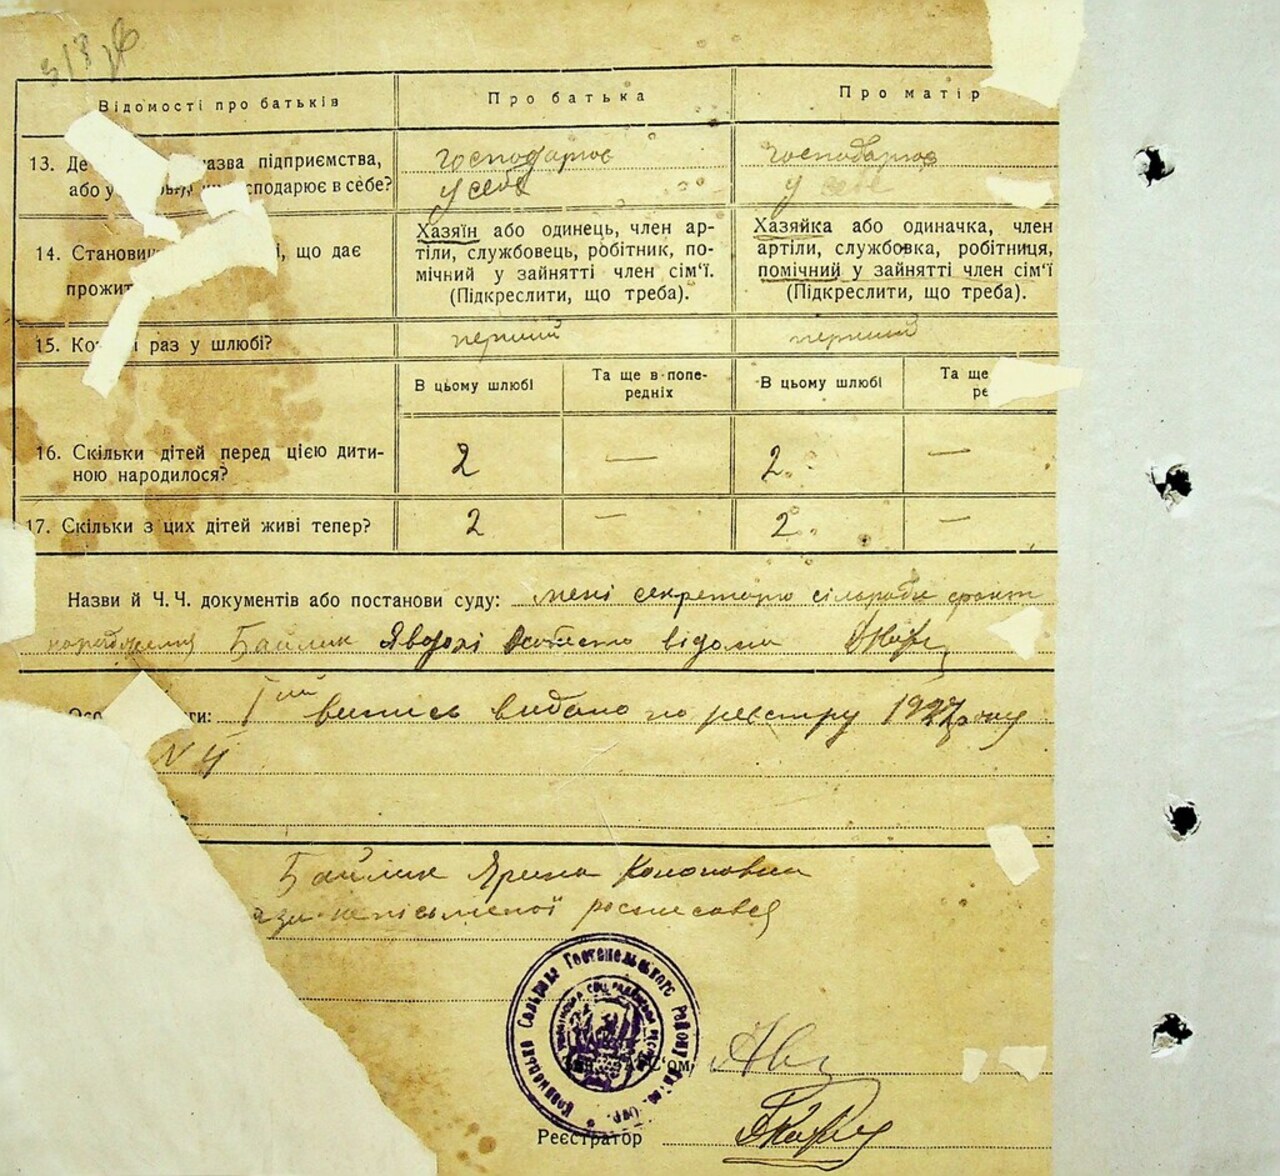 318
Відомості про батьків
Про батька
Про матір
13. Де назва підприємства,
або у господарює в себе?
господарює
у себе
господарює
у себе
14. Становищ і, що дає
прожит
Хазяїн або одинець, член ар-
тілі, службовець, робітник, по-
мічний у зайнятті член сім'ї.
(Підкреслити, що треба).
Хазяйка або одиначка, член
артіли, службовка, робітниця,
помічний у зайнятті член сім'ї
(Підкреслити, що треба).
15. Ко раз у шлюбі?
перший
перший
В цьому шлюбі
Та ще в попе-
редніх
В цьому шлюбі
Та ще
ре
16. Скільки дітей перед цією дити-
ною народилося?
2 —
2 —
17. Скільки з цих дітей живі тепер?
2 —
2 —
Назви й Ч.Ч. документів або постанови суду: мені секретарю сільради факт
народження Байлик Явдохі особисто відома
Осо ти: І ий випись видано по реєстру 1927 року
N 4
Байлик Ярина Кононовна
а за неписьменої росписався
Сільрада Гостомельського Району
С'ом
Реєстратор